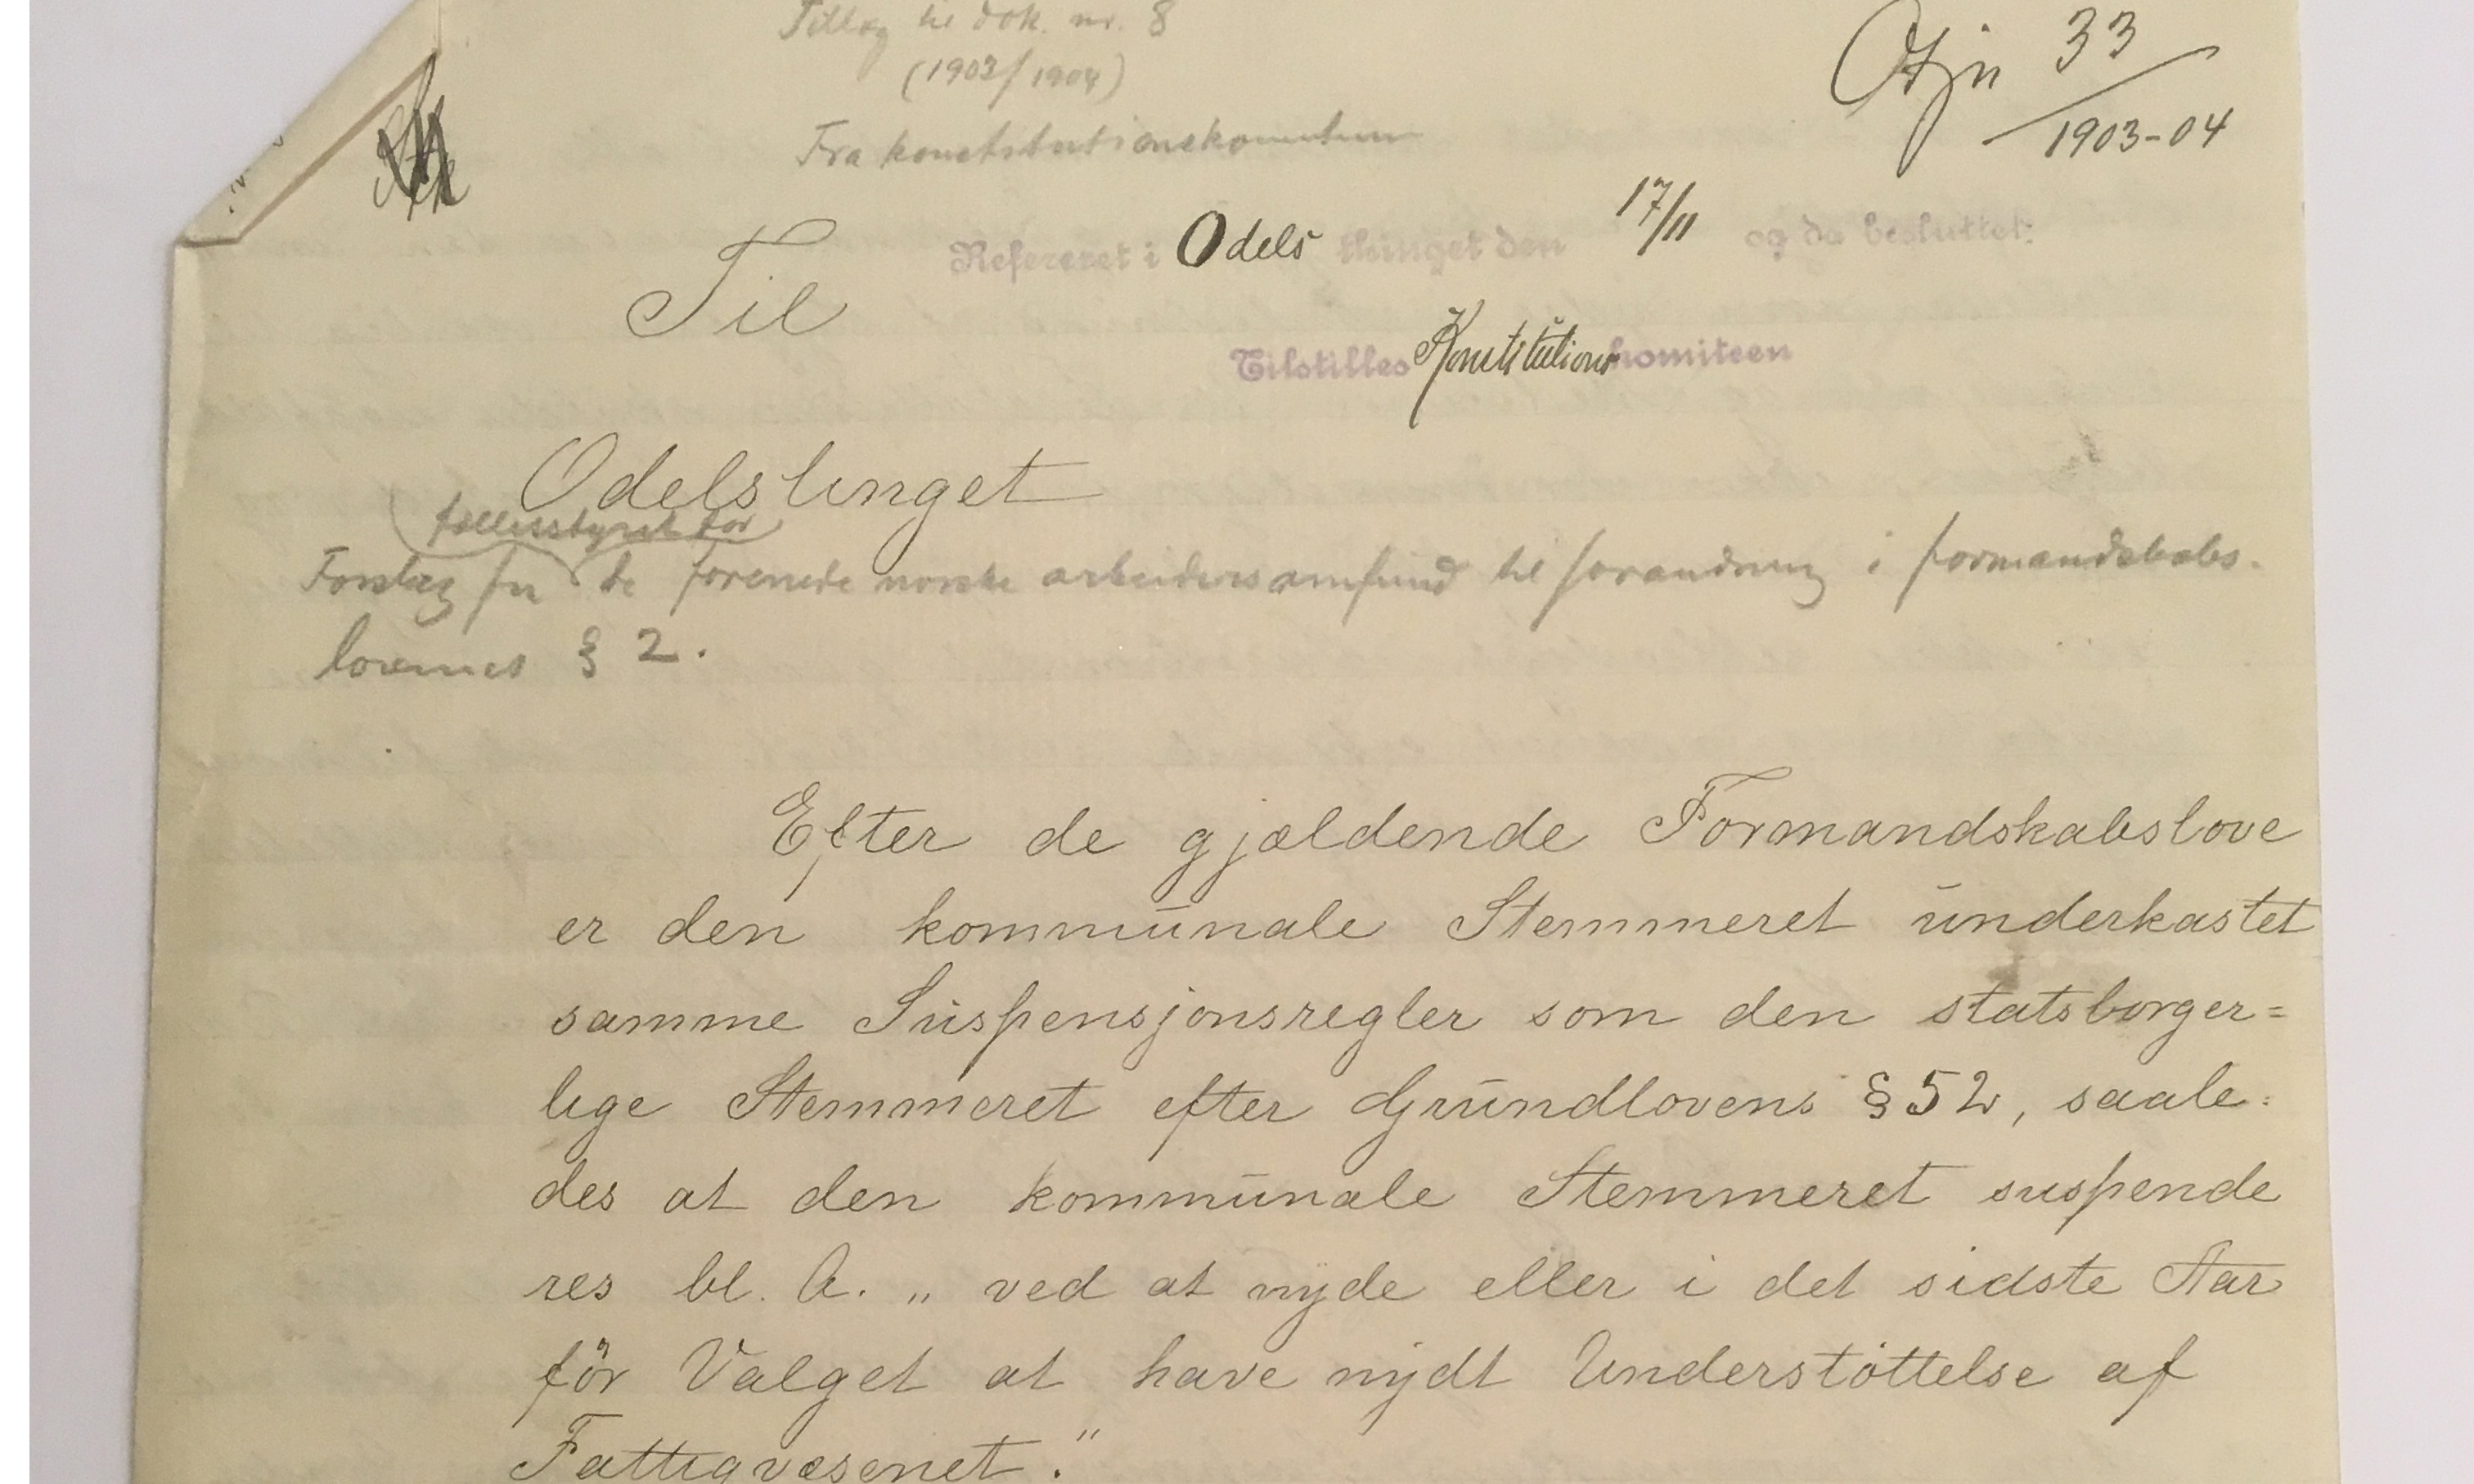 Tillæg til dok. nr. 8
(1903/1904)
Fra konstitutionskomiteen
Otjn 33
1903-04
Refereret i Odels thinget den 17/11 og da besluttet:
Til
Tilstilles Konstitutions komiteen
Odelstinget
fællesstyret for
Forslag fra de forenede norske arbeidersamfund til forandring i formandskabs-
lovenes § 2.
Efter de gjældende Formandskabslove
er den kommunale Stemmeret underkastet
samme Suspensjonsregler som den statsborger=
lige Stemmeret efter Grundlovens § 52, saale=
des at den kommunale Stemmeret suspende
res bl. A. „ ved at nyde eller i det sidste Aar
för Valget at have nydt Understöttelse af
Fattigvæsenet."